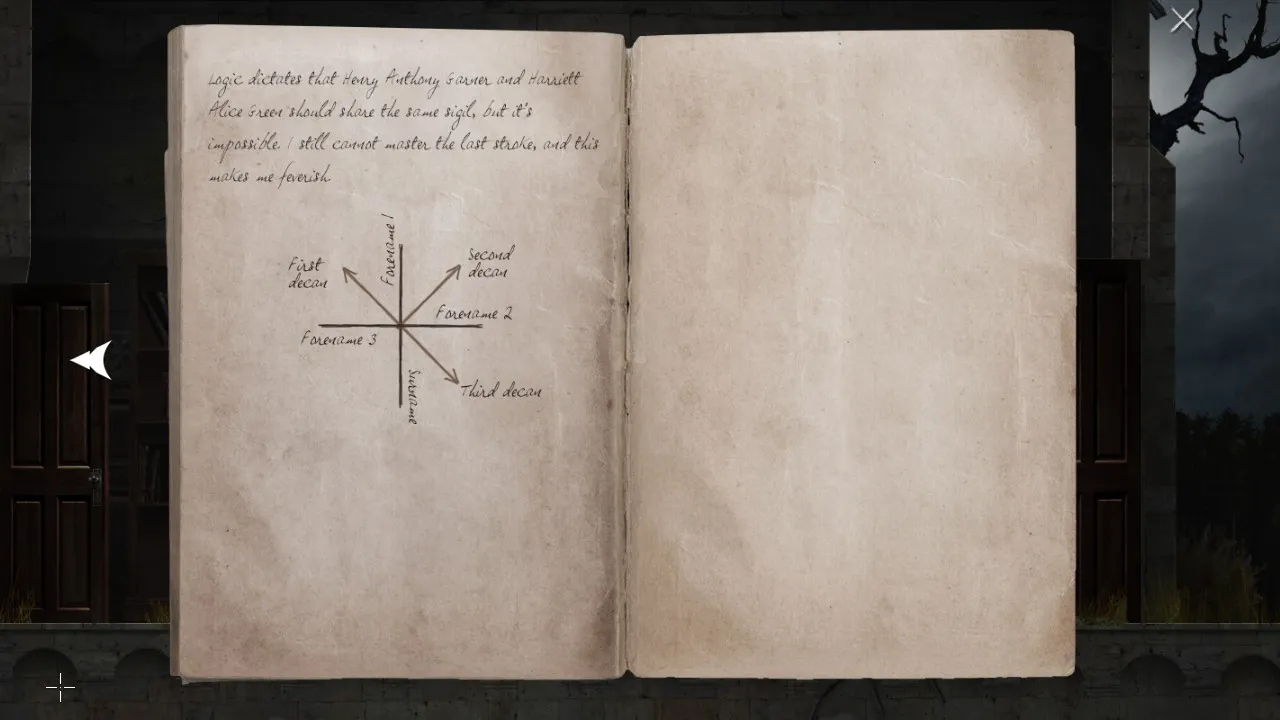 Logic dictates that Henry Anthony Garner and Harriett
Alice Green should share the same sigil, but it's
impossible. I still cannot master the last stroke, and this
makes me feverish.
Forename 1
First
decan
Second
decan
Forename 2
Forename 3
Surname
Third decan